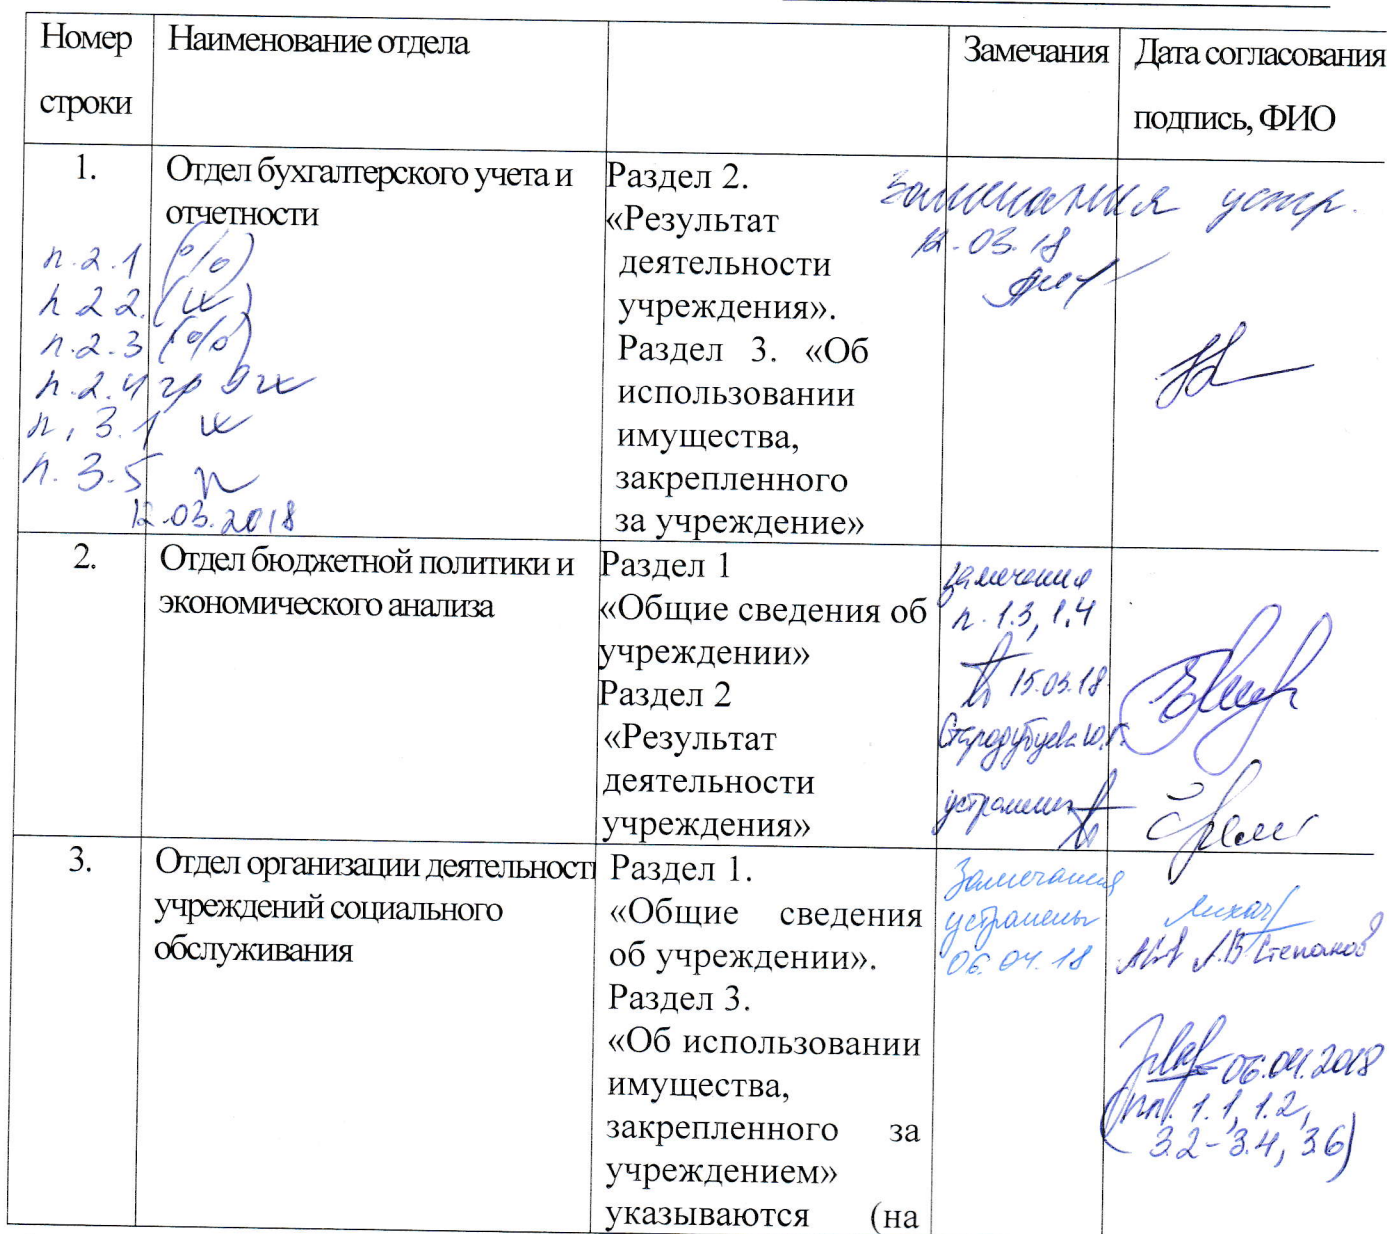 Номер
строки
Наименование отдела
Замечания
Дата согласования
подпись, ФИО
1.
Отдел бухгалтерского учета и
отчетности
п.2.1 (%)
п 2.2.
п.2.3 (%)
п.2.4 гр 9
п. 3.1
п. 3.5
12.03.2018
Раздел 2.
«Результат
деятельности
учреждения».
Раздел 3. «Об
использовании
имущества,
закрепленного
за учреждение»
Замечания устр.
12.03.18
2.
Отдел бюджетной политики и
экономического анализа
Раздел 1
«Общие сведения об
учреждении»
Раздел 2
«Результат
деятельности
учреждения»
Замечания
п. 1.3, 1.4
15.03.18
Стародубцева Ю.
устранены
3.
Отдел организации деятельност
учреждений социального
обслуживания
Раздел 1.
«Общие сведения
об учреждении».
Раздел 3.
«Об использовании
имущества,
закрепленного за
учреждением»
указываются (на
Замечания
устранены
06.04.18
А.В Степанов
06.04.2018
(пп. 1.1, 1.2,
3.2-3.4, 3.6)